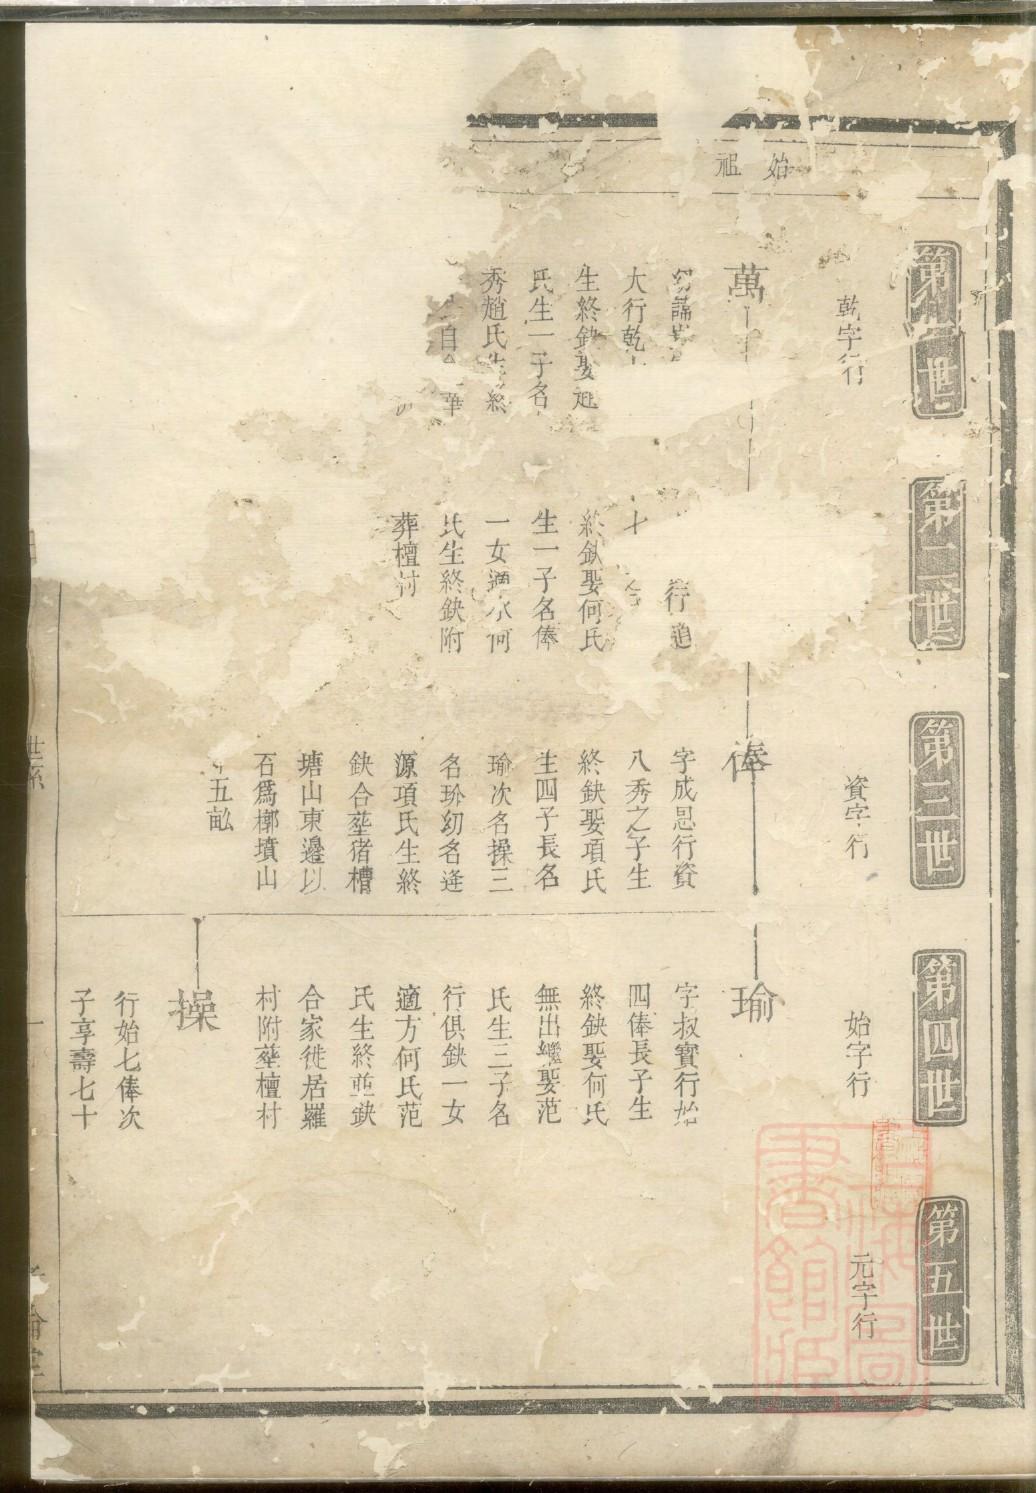 始祖
第一世
乾字行
萬
大行乾
生終缺娶趙
氏生一子名
秀趙氏生終
自
華
第二世
行
終缺娶何氏
生一子名俸
一女適 何
氏生終缺附
葬檀村
第三世
資字行
俸
字成思行資
八秀之子生
終缺娶項氏
生四子長名
瑜次名操三
名玠幼名逄
源項氏生終
缺合塟猪槽
塘山東邊以
石爲槨墳山
五畝
第四世
始字行
瑜
字叔寳行始
四俸長子生
終缺娶何氏
無出繼娶范
氏生三子名
行俱缺一女
適方何氏范
氏生終並缺
合家徙居羅
村附塟檀村
操
行始七俸次
子享壽七十
第五世
元字行
世系